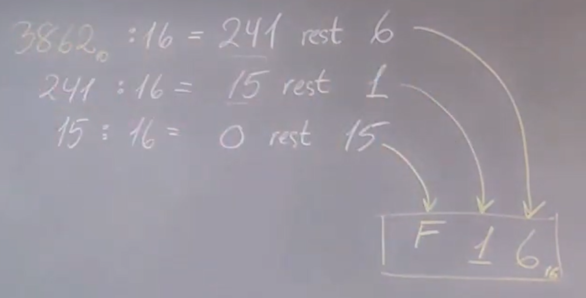 3862₀ :16 = 241 rest 6
241 :16 = 15 rest 1
15 : 16 = 0 rest 15
F 1 6₁₆